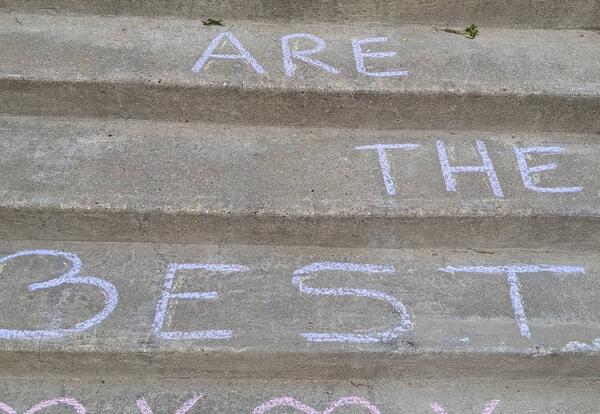 ARE
THE
BEST